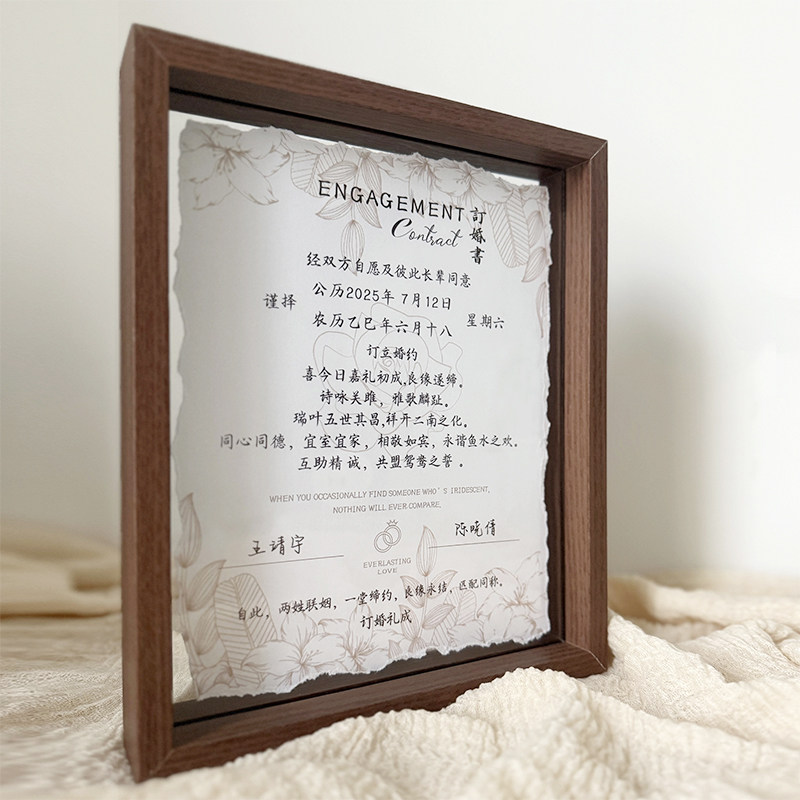 ENGAGEMENT
Contract
訂婚書
经双方自愿及彼此长辈同意
谨择
公历2025年7月12日
农历乙巳年六月十八
星期六
订立婚约
喜今日嘉礼初成,良缘遂缔。
诗咏关雎，雅歌麟趾。
瑞叶五世其昌,祥开二南之化。
同心同德，宜室宜家，相敬如宾，永谐鱼水之欢。
互助精诚，共盟鸳鸯之誓。
WHEN YOU OCCASIONALLY FIND SOMEONE WHO'S IRIDESCENT,
NOTHING WILL EVER COMPARE.
王靖宇
陈晓倩
EVERLASTING
LOVE
自此，两姓联姻，一堂缔约，良缘永结，匹配同称。
订婚礼成